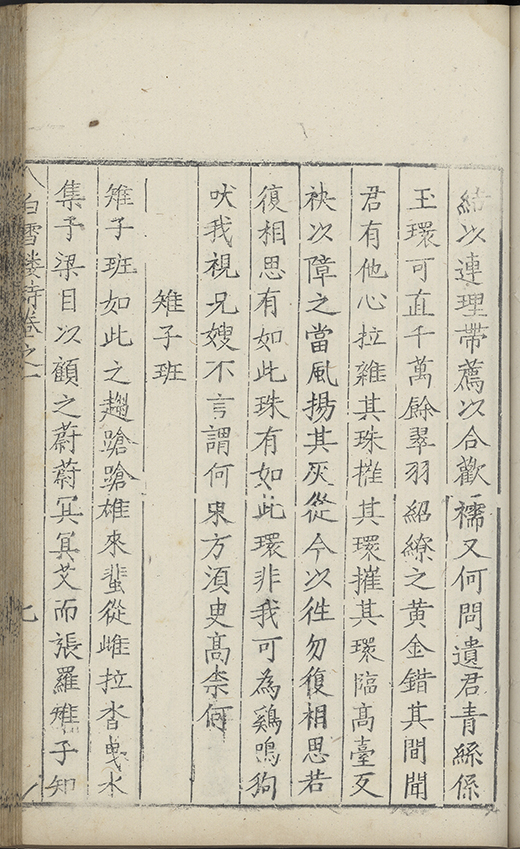 結以連理帶薦以合歡襦又何問遺君青絲係
玉環可直千萬餘翠羽紹繚之黃金錯其間聞
君有他心拉雜其珠摧其環摧其環臨高臺反
袂以障之當風揚其灰從今以徃勿復相思若
復相思有如此珠有如此環非我可為鷄鳴狗
吠我視兄嫂不言謂何東方須臾高柰何
雉子班
雉子班如此之趨蹌蹌雄來蜚從雌拉沓曵水
集子梁目以顧之蔚蔚冥冥艾而張羅雉子知
白雪樓詩卷之一
七